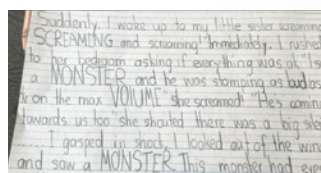 Suddenly I woke up to my little sister screaming
SCREAMING and screaming "Immediatly. I rushed
to her bedroom asking if everything was ok "I s
a MONSTER and he was stomping as loud as
tv on the max VOlUME" she screamed! "He's comin
towards us too she shouted there was a big sile
...... I gasped in shock, I looked out of the win
and saw a MONSTER This monster had eve